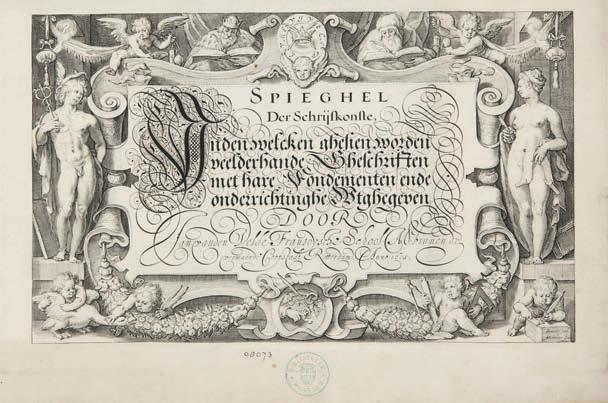 SPIEGHEL
Der Schrijfkonste,
Inden welcken ghesien worden
veelderhande Gheschriften
met hare Fondementen ende
onderrichtinghe Wtghegeven
DOOR
Jan vanden Velde Fransoysche School
Rotterdam Anno
98073